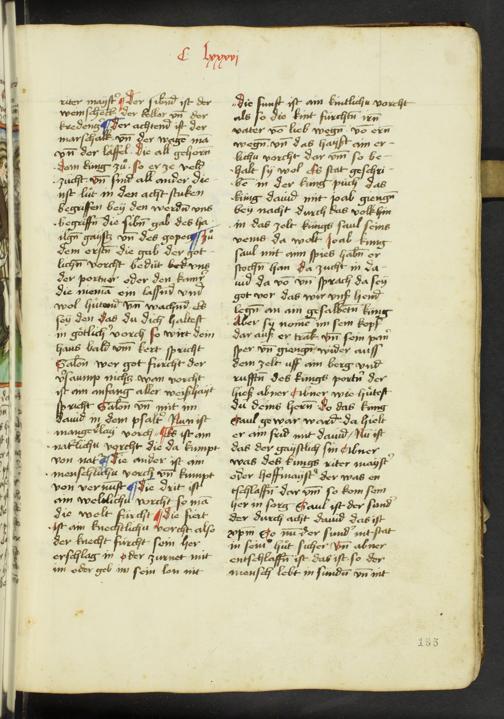 C lxxxvi
riter mayst' der sibend ist der
weinschenk der keller vn der
kredentz der achtend ist der
marschalk vn der wage
vn der taffel die all gehorn
dem king zu so er ze veld
zucht vn sind all ander die
nit lut in den acht stuken
begriffen bey den werden uns
begriffn die sibn gab des ha
ilgn gaistz vn des
dem ersten die gab der got
lichn vorcht bedut
der portner oder den kamrer
die nieman ein lassend
wol hutend vn wachend
sey den das du dich haltest
in gotlich' vorch so wirt dein
haus bald vmkert spricht
Salon wer got furcht der
versaump nichtz wan vorcht
ist am anfang aller weishait
spricht Salon vn mit im
dauid in dem psalt Nun ist
mangerlay vorch Es ist am
natturliche vorcht die da kumpt
von nat die ander ist am
menschliche vorch vn kumpt
von vernuft die drit ist
am weltliche vorcht so man
die welt furcht die fiert
ist am knechtliche vorcht also
der knecht furcht sein her
erschlag in oder zurnet mit
im oder geb im sein lon nit
die funft ist am kintliche vorcht
als so die kint furchten irn
vater vo lieb wegn vo ern
wegn vn das haist am er
lichu vorcht dar vm so be
halt sy wol Es stat geschri
be in der king puch das
king dauid mit joab gieng
bey nacht durch das volk hin
in das zelt kings saul seins
veins da wolt joab king
saul mit am spies habn er
stochn han da zucht in da
uid da vo vn sprach da sey
got vor das wir unß hend
legn an am gesalbten king
Aber sy nome im sein kopf
dar auß er trak vn sein
sper vn giengn wider auß
dem zelt uff am berg vnd
rufften des kings portn der
hieß abner Abner wie hutest
du deins hern Do das king
Saul gewar ward da hielt
er am frid mit dauid Nu ist
das der gaistlich sin Abner
was des kings riter mayst'
oder hoffmayst' der was en
tschlaffn dar vm so kom sein
her in sorg Saul ist der sund'
der durch acht dauid das ist
So nu der sund' nit stat
in sein' hut sicher vn abner
entschlaffn ist das ist so der
mensch lebt in sunden vn nit
155